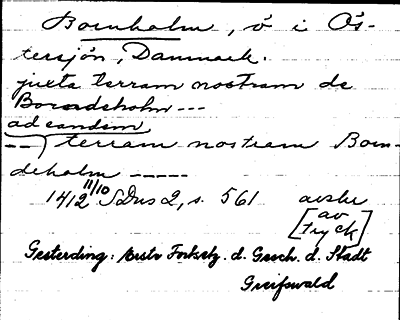 Bornholm, ö i Ös-
tersjön, Danmark.
juxta terram nostram de
Borendeholm ---
ad eandem
--) terram nostram Born-
deholm -----
1412 11/10 SDns 2, s. 561 avskr
av
[tryck]
Gesterding: Erste Fortsetz. d. Gesch. d. Stadt
Greifswald